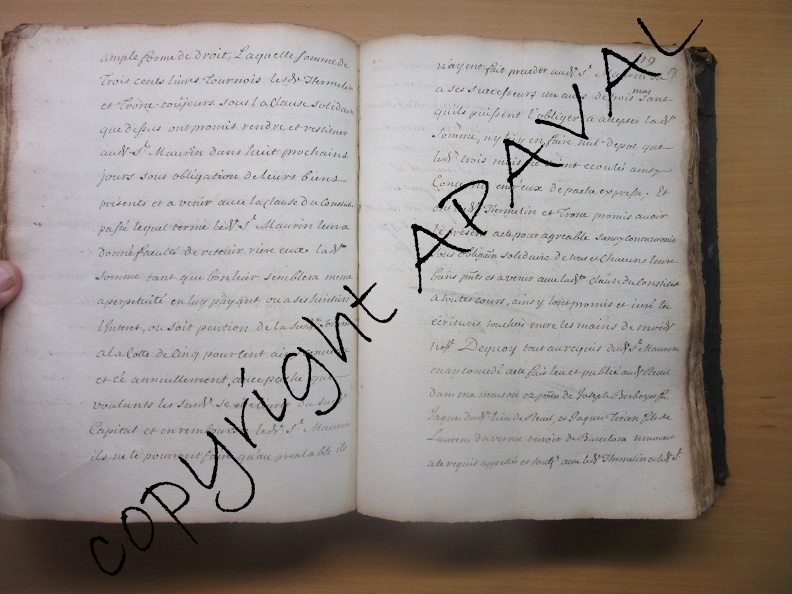 ample forme de droit, Laquelle somme de
Trois cents livres Tournois les dts Hermelin
et Trone toujours sous la Clause solidaire
que dessus ont promis rendre et restituer
audt Sr Maurin dans huit prochains
jours sous obligation de leurs biens
présents et a venir avec la Clause de Constitut
passé lequel terme ledt Sr Maurin leur a
donné faculté de retenir riere eux la dte
somme tant que bon leur semblera meme
a perpetuité en luy payant ou a ses hoirs
l'Interet, ou soit pention de la susdte somme
a la Cotte de Cinq pour Cent
et ce annuellement, avec pache que
voulants les susdts se
Capital et en rembourser ledt Sr Maurin
ils ne le pourront faire qu'au prealable ils
19
n'ayent fait proceder audt Sr Maurin ou
a ses successeurs un avis de trois mois sans
qu'ils puissent l'obliger a accepter la dte
Somme, ny luy en faire nul depot que
lesdts trois mois ne soient ecoulés ainsy
Convenu entr'eux de pache expresse. Et
Hermelin et Trone promis avoir
le present acte pour agreable sans y contrevenir
sous obligaon solidaire de tous et Chacuns leurs
biens pnts et a venir avec la dte Clause de Constitut
a toutes cours, ainsy l'ont promis et juré les
ecritures touchées entre les mains de
nore Dequoy tout au requis dudt Sr Maurin
en ay concedé acte fait leu et publié audt Reul
dans ma maison ez pnces de Joseph Berbeyer fs
Jaques dudt lieu de Reul, et Jaques Tiran fils de
Laurens du terroir de Barcelone temoins
a ce requis appellés et soubsés avec ledt Hermelin et le dt Sr
copyright APAVAL